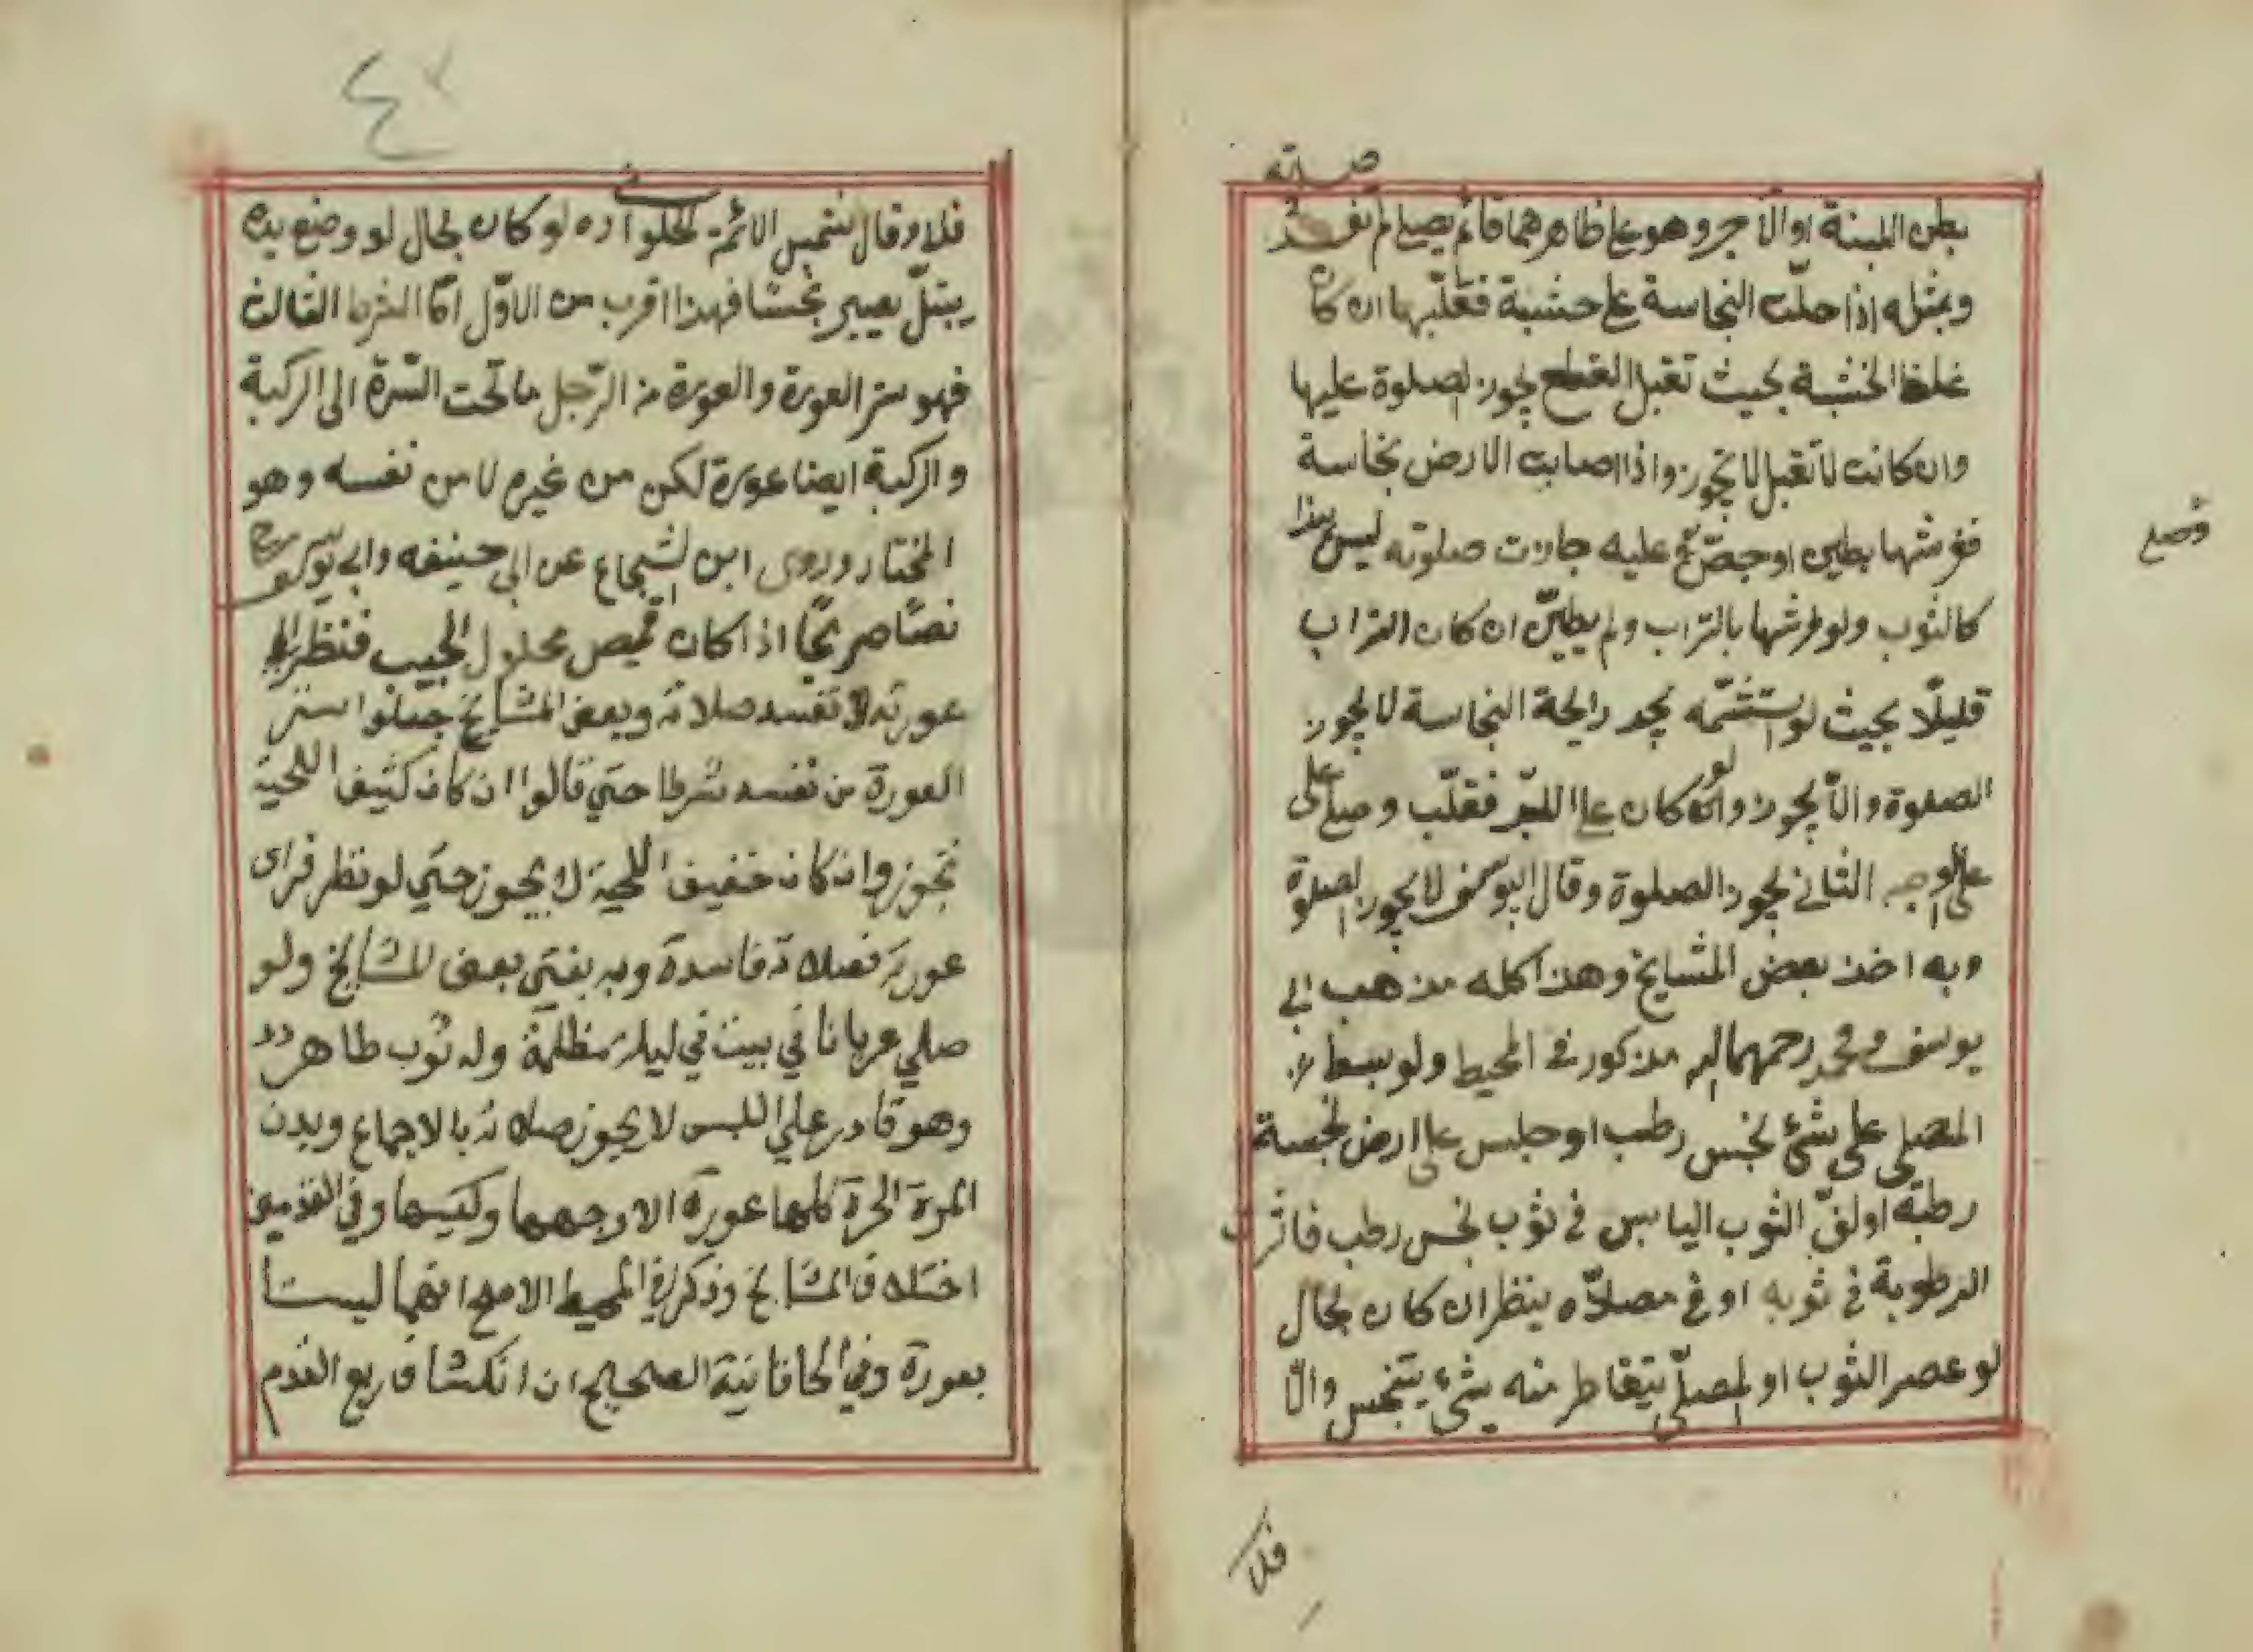 صلاته
بطن اللبنة او الآجر وهو على ظاهرهما قائم يصلي لم تفسد
وبمثله اذا حلّت النجاسة على خشبة فقلّبها ان كان
غلظ الخشبة بحيث تقبل القطع يجوز الصلوة عليها
وان كانت لا تقبل لا يجوز واذا اصابت الارض نجاسة
ففرشها بطين او جصّ عليه جازت صلوته ليس هذا
فصلى
كالثوب ولو فرشها بالتراب ولم يطيّن ان كان التراب
قليلًا بحيث لو استشمّه يجد رايحة النجاسة لا يجوز
الصلوة والّا يجوز ولو كان على اللبد فقلّب وصلى على
على الوجه الثاني يجوز الصلوة وقال ابو يوسف لا يجوز الصلوة
وبه اخذ بعض المشايخ وهذا كله مذهب ابي
يوسف ومحمد رحمهما الله مذكور في المحيط ولو بسط
المصلى على شئ نجس رطب او جلس على ارض نجسة
رطبة او لفّ الثوب اليابس في ثوب نجس رطب فاثرت
الرطوبة في ثوبه او في مصلّاه ينظر ان كان بحال
لو عصر الثوب او المصلّى يتقاطر منه شئ يتنجس والّا
فلا
٤٧
فلا وقال شمس الائمة الحلواني ره لو كان بحال لو وضع يده
يبتلّ يصير نجسًا فهذا اقرب من الاوّل امّا الشرط الثالث
فهو ستر العورة والعورة من الرّجل ما تحت السّرة الى الركبة
والركبة ايضا عورة لكن من غيره لا من نفسه وهو
المختار وروى ابن الشجاع عن ابي حنيفه وابي يوسف رح
نصًا صريحًا اذا كان قميص محلول الجيب فنظر الى
عورته لا تفسد صلاته وبعض المشايخ جعلوا ستر
العورة من نفسه شرطا حتي قالوا ان كان كثيف اللحية
تجوز وان كان خفيف اللحية لا يجوز حتي لو نظر فراى
عورته فصلاته فاسدة وبه يفتي بعض المشايخ ولو
صلي عريانا في بيت في ليلة مظلمة وله ثوب طاهر
وهو قادر علي اللبس لا يجوز صلاته بالاجماع وبدن
المرة الحرة كلها عورة الا وجهها وكفيها وفي القدمين
اختلاف المشايخ وذكر في المحيط الاصح انهما ليستا
بعورة وفي الخاقانية الصحيح ان انكشاف ربع القدم